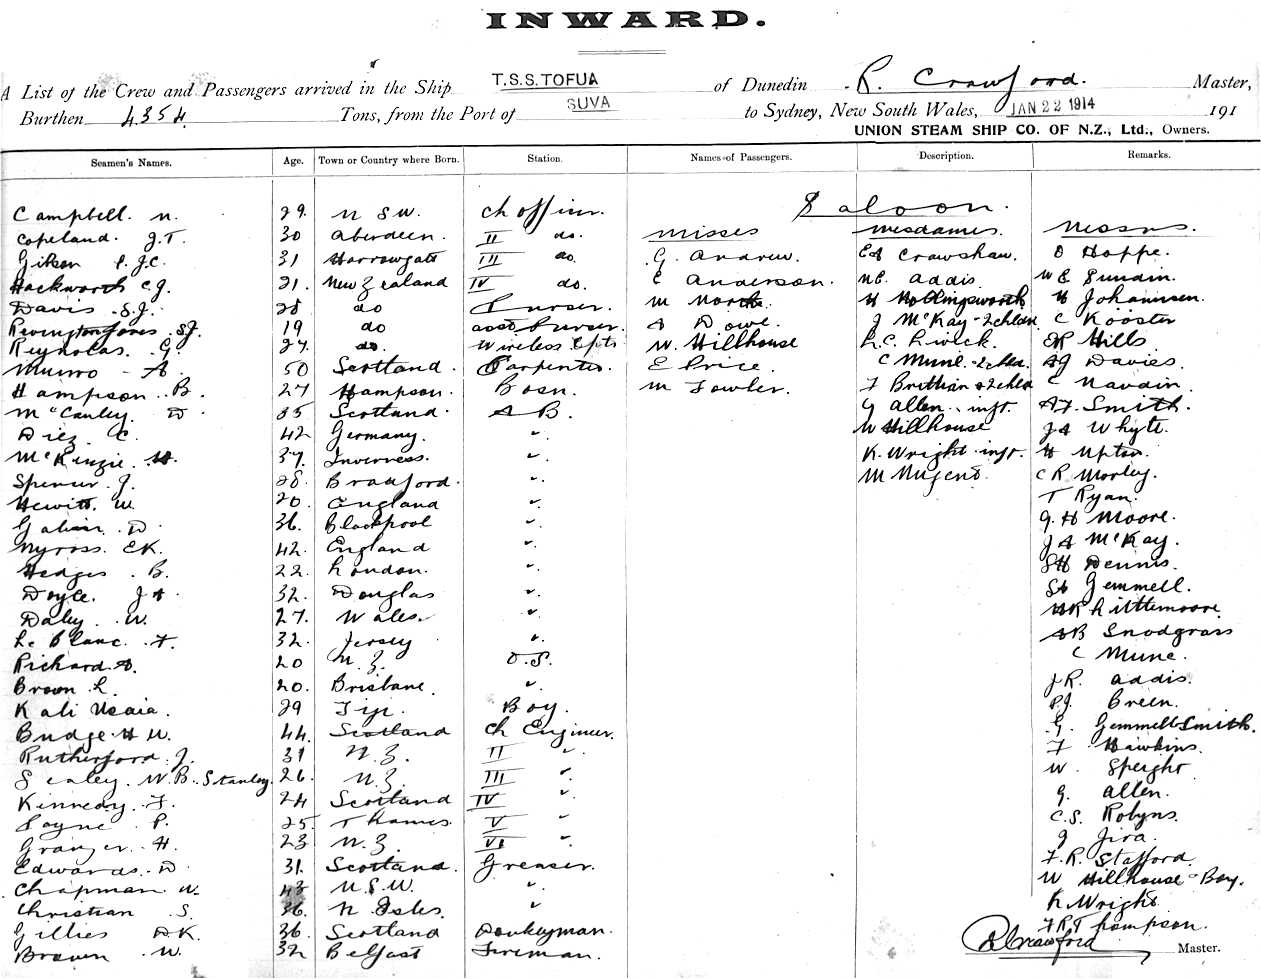 INWARD.
A List of the Crew and Passengers arrived in the Ship T.S.S. TOFUA of Dunedin R. Crawford. Master,
Burthen 4354 Tons, from the Port of SUVA to Sydney, New South Wales, JAN 22 1914 191
UNION STEAM SHIP CO. OF N.Z., Ltd., Owners.
Seamen's Names. Age. Town or Country where Born. Station. Names of Passengers. Description. Remarks.
Saloon.
Campbell. N. 29. N S W. Ch Officer.
Copeland. J.T. 30 Aberdeen. II do. Misses Mesdames. Messrs.
P.J.C. 31 Harrowgate III do. G. Andrew. Crawshaw. D Hoppe.
Hackworth C.J. 21. New Zealand IV do. E Anderson. N.E. Addis. W E Sundin.
Davis S.J. 28 do Purser. M North H Hollingsworth H Johannsen.
Revington Jones S.J. 19 do asst Purser. A Dowe. J McKay - 2 chldn C Kooster
Reynolds. G. 27 do. Wireless Opts W. Hillhouse L.C. Hills
Munro - A. 50 Scotland. Carpenter E Price. C Mune. 2 chld. AJ Davies.
Hampson. B. 27 Hampson. Bosn. M Fowler. F Brittian & 2 chld C Navain.
McCauley D. 35 Scotland. A B. G Allen. inft. A.F. Smith.
Diez C. 42 Germany. " W Hillhouse J A Whyte.
McKenzie. H. 37. Inverness. " K. Wright inft. H Upton.
Spencer. J. 28. Bradford. " M Nugent. C R Morley.
Hewitt. W. 20. England " T Ryan.
D. 36. Blackpool " G. H Moore.
E.K. 42. England " J A McKay.
Hedges. B. 22. London. " S H Dennis.
Doyle. J A. 32. Douglas " Gemmell.
Daley. W. 27. Wales. " Littlemoore
Le Blanc. F. 32. Jersey " AB Snodgrass
Richard A. 20 N. Z. O.S. C Mune.
Brown L. 20. Brisbane. " J R. Addis.
Kali Usaia. 29 Fiji. Boy. P.J. Breen.
Budge H W. 44. Scotland Ch Engineer. G. Gemmell Smith.
Rutherford. J. 31 N. Z. II " F. Hawkins.
Sealey. W.B. Stanley. 26. N. Z. III " W. Speight
Kennedy. F. 24 Scotland IV " G. Allen.
Payne P. 25. Thames. V " C.S. Robyns.
Granger. H. 23 N. Z. VI " J Jira.
Edwards. D 31. Scotland. Greaser. F.R. Stafford
Chapman W. 43 N. S. W. " W Hillhouse - Boy.
Christian S. 36. N Isles. " K Wright
Gillies D.K. 36. Scotland Donkeyman. F R Thompson.
Brown. W. 32 Belfast Fireman. R Crawford Master.